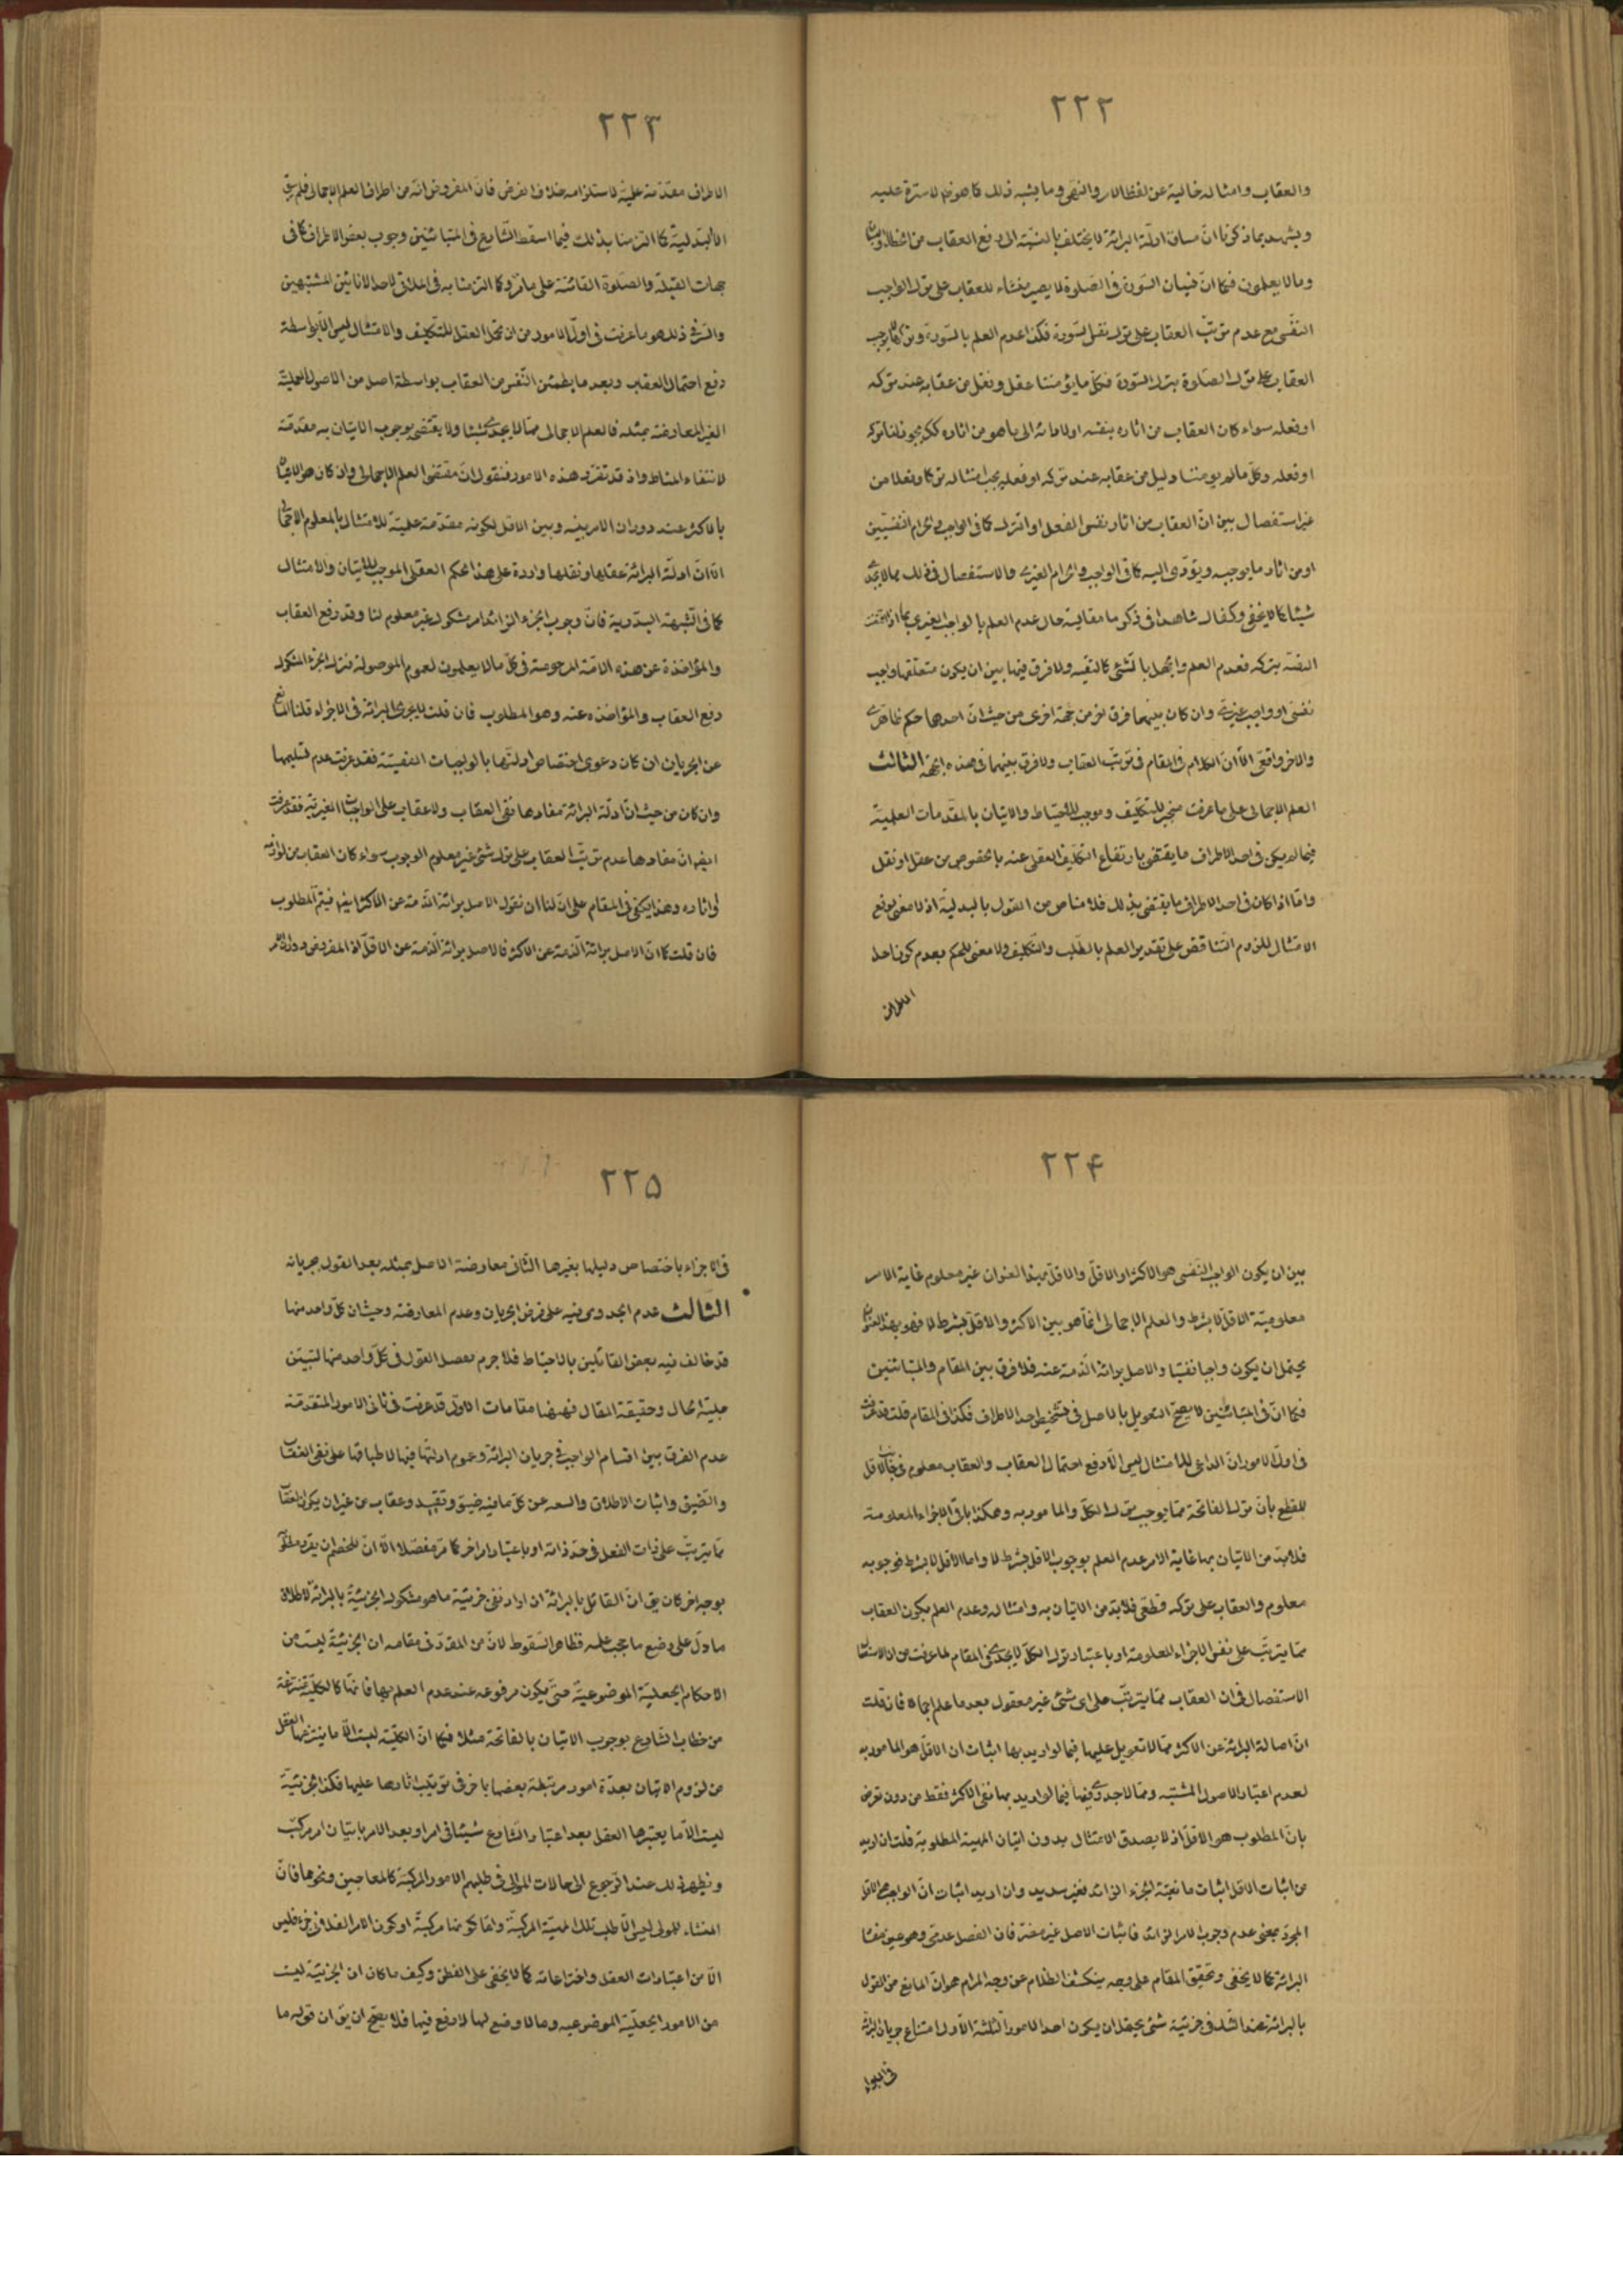 ۲۲۲
والعقاب وامثاله خالية عن لفظ الامر والنهى وما يشبه ذلك كما هو لا سترة عليه
ويشهد بما ذكرنا انّ مساق ادلّة البرائة لا يختلف بالنسبة الى رفع العقاب من
وما لا يعلمون فكما انّ نسيان السّورة فى الصّلوة لا يصير منشاء للعقاب على ترك الواجب
النفسى مع عدم ترتّب العقاب على ترك نفس السّورة فكذا عدم العلم بالسّورة
العقاب على ترك الصّلوة بترك السّورة فكلّ ما يؤمننا عقل ونقل من عقابه عند تركه
او فعله سواء كان العقاب من اثاره بنفسه اولا مائه الى ما هو من اثاره يجوز لنا تركه
او فعله وكلّ مالم يومننا دليل من عقابه عند تركه او فعله يجب امتثاله تركا وفعلا من
غير استفصال بين انّ العقاب من اثار نفس الفعل او الترك كما فى الواجب والحرام النفسيّين
او من اثار ما يوجبه ويؤدّى اليه كما فى الواجب والحرام الغيرى والاستفصال فى ذلك مما لا يجدى
شيئا كما لا يخفى وكفاك شاهدا فى ذكر ما مقايسة حال عدم العلم بالواجب الغيرى بما اذا
التقيّة بتركه فعدم العلم والجهل بالشّئ كالتقيّه ولا فرق فيهما بين ان يكون متعلّقها واجب
نفسى او واجب غيرى وان كان بينهما فرق من جهة اخرى من حيث انّ احدها حكم ظاهرى
والاخر واقعى الّا انّ الكلام فى المقام فى ترتّب العقاب ولا فرق بينهما فى هذه الجهة الثالث
العلم الاجمالى على ما عرفت منجز للتكليف وموجب للاحتياط والاتيان بالمقدّمات العلميّة
فيما لم يكن فى احد الاطراف ما يقتضى بارتفاع التكليف العقلى عنه بالخصوص من عقل او نقل
وامّا اذا كان فى احد الاطراف ما يقتضى بذلك فلا مناص من القول بالبدليّة اذ لا معنى لرفع
الامتثال للزوم التناقض على تقدير العلم بالطّلب والتّكليف ولا معنى للحكم بعدم كون احد
الاطراف
۲۲۳
الاطراف مقدّمة علميّة لاستلزامه خلاف الفرض فانّ المفروض انّه من اطراف العلم الاجمالى فلم يبق
الّا البدليّة كما التزمنا بذلك فيما اسقط الشّارع فى المتبائنين وجوب بعض الاطراف كما فى
جهات القبلة والصّلوة الفائتة على ما مرّ وكما التزمنا به فى الملاقى لاحد الانائين المشتبهين
والسّر فى ذلك هو ما عرفت فى اوّل الامور من ان تحمّل العقل للتّكليف والامتثال ليس الّا بواسطة
دفع احتمال العقاب وبعد ما يطمئن النّفس من العقاب بواسطة اصل من الاصول العمليّة
الغير المعارضة بمثله فالعلم الاجمالى ممّا لا يجدى شيئا ولا يقتضى بوجوب الاتيان به مقدّمة
لانتفاء المناط واذ قد تقرّر هذه الامور فنقول انّ مقتضى العلم الاجمالى وان كان هو الاتيان
بالاكثر عند دوران الامر بينه وبين الاقل لكونه مقدّمة علميّة للامتثال بالمعلوم الاجمالى
الّا انّ ادلّة البرائة عقليها ونقليها واردة على هذا الحكم العقلى الموجب للاتيان والامتثال
كما فى الشّبهة البدويه فانّ وجوب الجزء الزائد امر مشكوك غير معلوم لنا وقد رفع العقاب
والمؤاخذة عن هذه الامّة المرحومة فى كلّ مالا يعلمون لعموم الموصولة فترك الجزء المشكوك
رفع العقاب والمؤاخذه عنه وهو المطلوب فان قلت لا يجرى البرائة فى الاجزاء قلنا المانع
عن الجريان ان كان دعوى اختصاص ادلّتها بالواجبات النفسيّة فقد عرفت عدم تسليمها
وان كان من حيث انّ ادلّة البرائة مفادها نفى العقاب ولا عقاب على الواجبات الغيريّة فقد عرفت
ايضا انّ مفادها عدم ترتّب العقاب على ترك شئ غير معلوم الوجوب سواء كان العقاب من لوازمه
او اثاره وهذا يكفى فى المقام على انّ لنا ان نقول الاصل برائة الذّمة عن الاكثر ايضا فيتمّ المطلوب
فان قلت كما انّ الاصل برائة الذّمة عن الاكثر فالاصل برائة الذّمة عن الاقلّ اذ المفروض دوران الامر
۲۲۴
بين ان يكون الواجب النّفسى هو الاكثر او الاقلّ والاقلّ بهذا العنوان غير معلوم غاية الامر
معلوميّة الاقلّ لا بشرط والعلم الاجمالى انّما هو بين الاكثر والاقلّ بشرط لا فهو بهذا العنوان
يحتمل ان يكون واجبا نفسيّا والاصل برائة الذّمة عنه فلا فرق بين المقام والمتبائنين
فكما انّ فى المتبائنين لا يصحّ التعويل بالاصل فى تشخيص احد الاطراف فكذا فى المقام قلت قد عرفت
فى اوّل الامور انّ الداعى للامتثال ليس الّا دفع احتمال العقاب والعقاب معلوم فى جانب الاقل
للقطع بأنّ ترك الفاتحة ممّا يوجب ترك الكلّ والمامور به وهكذا باقى الاجزاء المعلومة
فلا بدّ من الاتيان بها غاية الامر عدم العلم بوجوب الاقلّ بشرط لا واما الاقلّ لا بشرط فوجوبه
معلوم والعقاب على تركه قطعى فلا بدّ من الاتيان به وامتثاله وعدم العلم بكون العقاب
ممّا يترتّب على نفس الاجزاء المعلومة او باعتبار ترك الكلّ لا يجدى فى المقام لما عرفت من ان
الاستفصال فى ان العقاب ممّا يترتّب على اى شئ غير معقول بعد ما علم اجمالا فان قلت
انّ اصالة البرائة عن الاكثر ممّا لا تعويل عليها فيما لو اريد بها اثبات ان الاقلّ هو المامور به
لعدم اعتبار الاصول المثبته وممّا لا جدوى فيها فيما لو اريد بها نفى الاكثر فقط من دون تعرض
بانّ المطلوب هو الاقلّ اذ لا يصدق الامتثال بدون اتيان المهيّة المطلوبة قلت ان اريد
من اثبات الاقل اثبات مانعيّة الجزء الزائد فغير سديد وان اريد اثبات انّ الواجب هو الاقل
المجرّد بمعنى عدم وجوب الامر الزائد فاثبات الاصل غير مضرّ فان الفصل عدمى وهو عين مفاد
البرائة كما لا يخفى وتحقيق المقام على وجه ينكشف الظّلام عن وجه المرام هو انّ المانع من القول
بالبرائة عند الشّك فى جزئية شئ يحتمل ان يكون احد الامور الثّلثة الأول امتناع جريان البرائة
فى الاجزاء
۲۲۵
فى الاجزاء باختصاص دليلها بغيرها الثّانى معارضة الاصل بمثله بعد القول بجريانه
الثّالث عدم الجدوى فيه على فرض الجريان وعدم المعارضة وحيث ان كلّ واحد منها
قد خالف فيه بعض القائلين بالاحتياط فلا جرم نفصل القول فى كلّ واحد منها لتبيّن
جليّة الحال وحقيقة المقال فههنا مقامات الاوّل قد عرفت فى ثانى الامور المتقدّمة
عدم الفرق بين اقسام الواجب فى جريان البرائة وعموم ادلّتها فيها لاطباقها على نفى العقاب
والضّيق واثبات الاطلاق والسعه عن كلّ ما فيه ضيق وتقييد وعقاب من غير ان يكون العقاب
مما يترتّب على ذات الفعل فى حدّ ذاته او باعتبار امر اخر كما مرّ مفصّلا الّا انّ للخصم ان يقرّر
بوجه اخر كان يق انّ القائل بالبرائة ان اراد نفى جزئيّة ما هو مشكوك الجزئيّة بالبرائة لاطلاق
ما دلّ على وضع ما حجب علمه فظاهر السّقوط لانّ من المقرّر فى مقامه ان الجزئيّة ليست من
الاحكام الجعليّة الموضوعيّة حتّى يكون مرفوعه عند عدم العلم بها فانّها كالكليّة منتزعة
من خطاب الشّارع بوجوب الاتيان بالفاتحة مثلا فكما انّ الكليّة ليست الّا ما ينتزعها العقل
من لزوم الاتيان بعدّة امور مرتبطة بعضها باخر فى ترتيب اثارها عليها فكذا الجزئيّة
ليست الّا ما يعتبرها العقل بعد اعتبار الشّارع شيئا فى امر او بعد الامر باتيان امر مركّب
ويظهر ذلك عند الرّجوع الى حالات الموالى فى طلبهم الامور المركّبة كالمعاجين ونحوها فانّ
المنشاء للمولى ليس الّا طلب تلك المهيّة المركّبة وامّا كونها مركبّة او كون الامر الفلانى جزء فليس
الّا من اعتبارات العقل واختراعاته كما لا يخفى على الفطن وكيف ما كان انّ الجزئيّة ليست
من الامور الجعليّة الموضوعيه وما لا وضع لها لا رفع فيها فلا يصحّ ان يق ان قوله ما